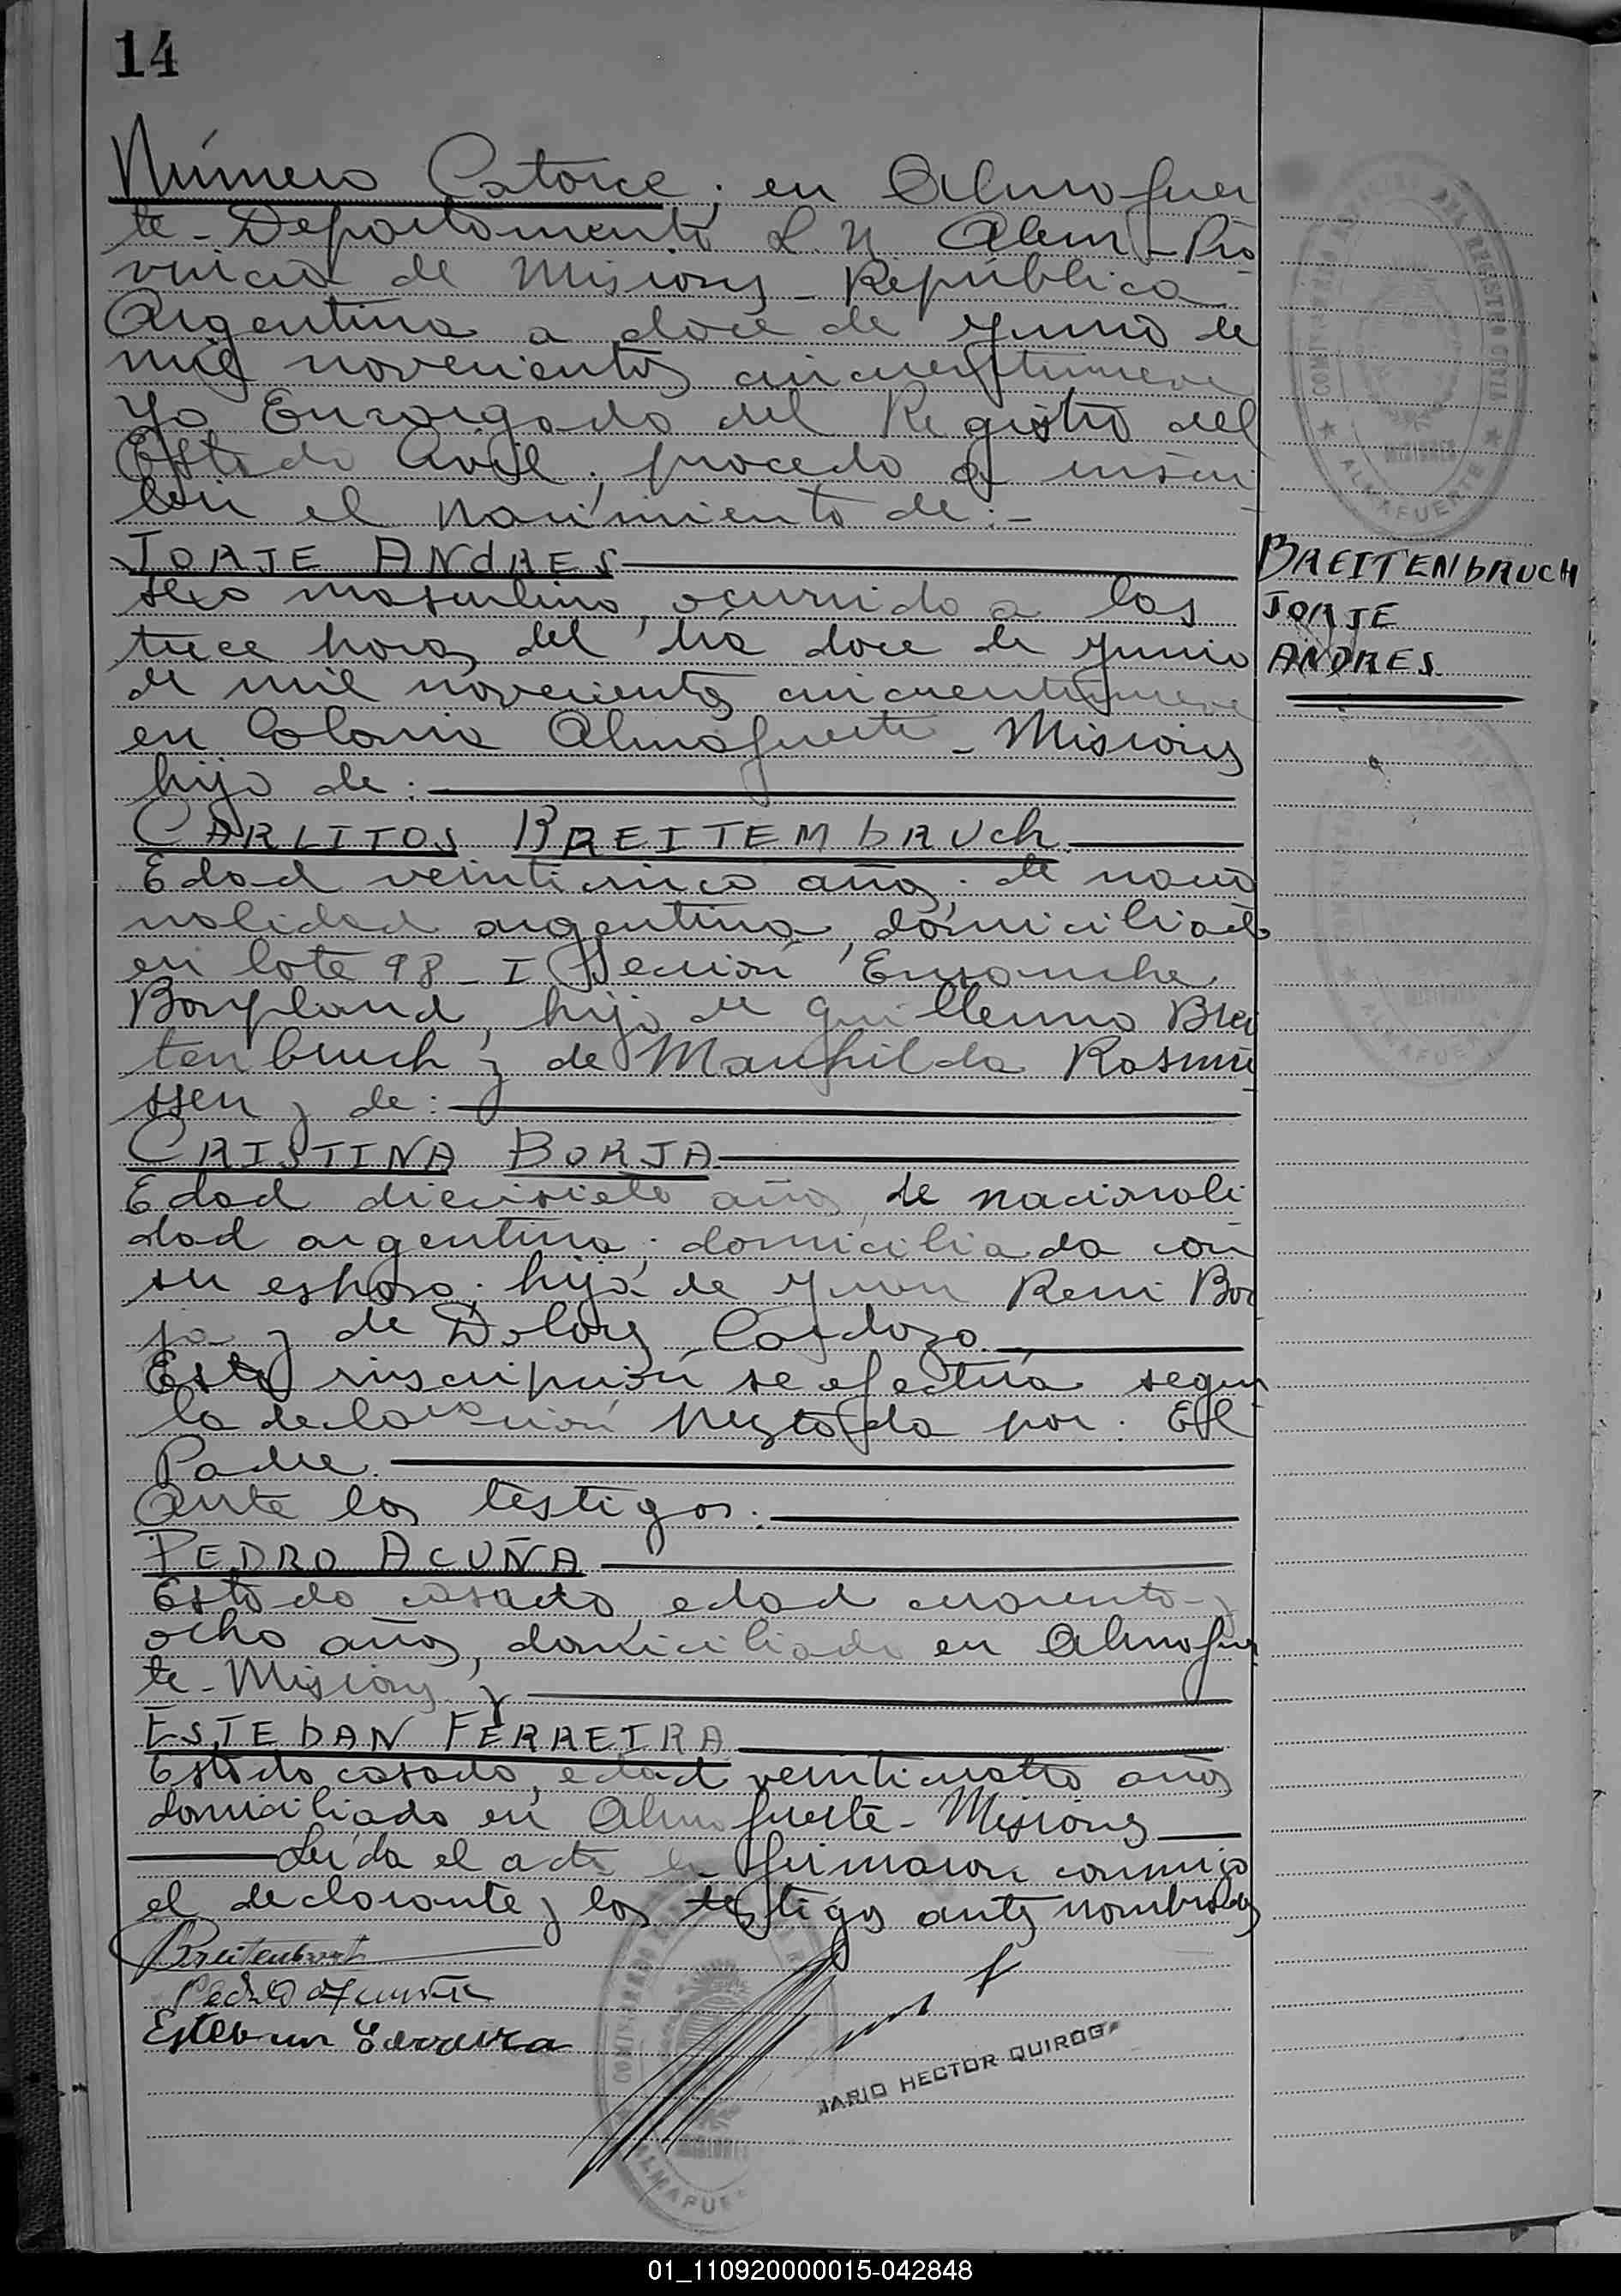 14
Número Catorce; en Almafuer
te - Departamento L. N. Alem - Pro
vincia de Misiones - República
Argentina a doce de Junio de
mil novecientos cincuentinueve
Yo Encargado del Registro del
Estado Civil; procedo a inscri
bir el Nacimiento de:-
JORJE ANdRES
BREITENbRUCH
JORJE
ANDRES
sexo masculino, ocurrido a las
trece horas del día doce de Junio
de mil novecientos cincuentinueve
en Colonia Almafuerte - Misiones
hijo de:
CARLITOS BREITEMbRUch
Edad veinticinco años; de nacio
nalidad argentina, domiciliado
en lote 98 - I Sección Ensanche
Bonpland, hijo de Guillermo Brei
tenbruch y de Manhilda Rasmu
ssen y de:
CRISTINA BORJA
Edad diecisiete años, de nacionali
dad argentina; domiciliada con
su esposo; hija de Juan Reni Bor
ja y de Dolores Cardozo
Esta inscripción se efectúa según
la declaración prestada por: El
Padre.
Ante los testigos:
PEDRO ACUÑA
Estado casado, edad cuarenta y
ocho años, domiciliado en Almafuer
te - Misiones y
ESTEbAN FERREIRA
Estado casado, edad veinticuatro años
domiciliado en Almafuerte - Misiones
Leída el acta la firmaron conmigo
el declarante y los testigos antes nombrados
Breitenbruch
Pedro Acuña
Esteban Ferreira
MARIO HECTOR QUIROGA
REGISTRO CIVIL
ALMAFUERTE
MISIONES
01_110920000015-042848